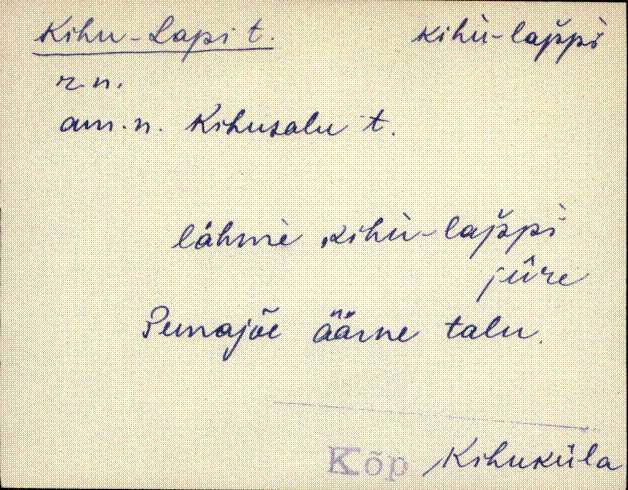 Kihu-Lapi t. kihù-lap̆pì
r.n.
am.n. Kihusalu t.
láhmè kihù-lap̆pì
jûre
Punajõe äärne talu.
Kõp Kihuküla